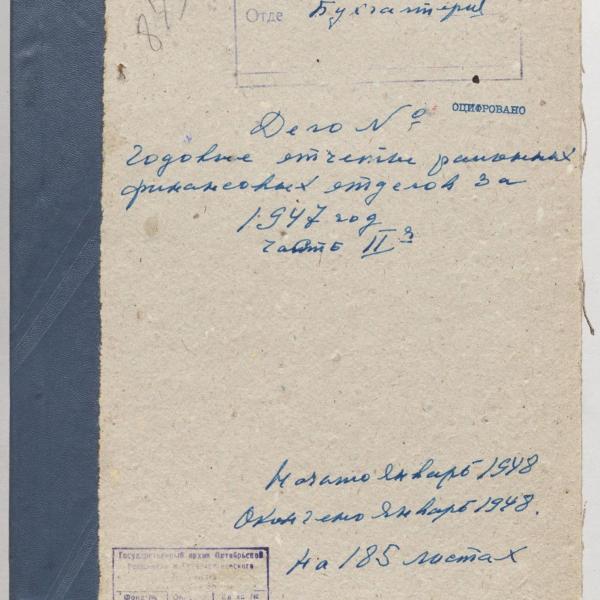 Отде Бухгалтерия
ОЦИФРОВАНО
Дело №
Годовые отчеты районных
финансовых отделов за
1947 год
часть II я
Начато январь 1948
Окончено январь 1948.
на 185 листах
Государственный архив Октябрьской
Фонд №